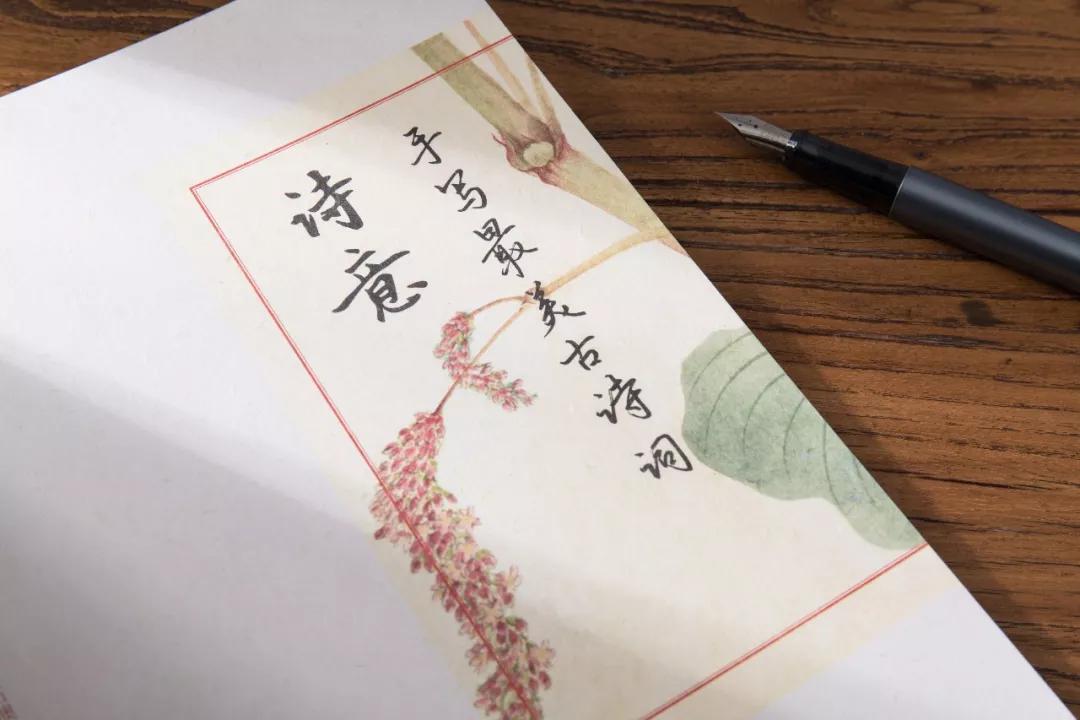 诗意
手写最美古诗词